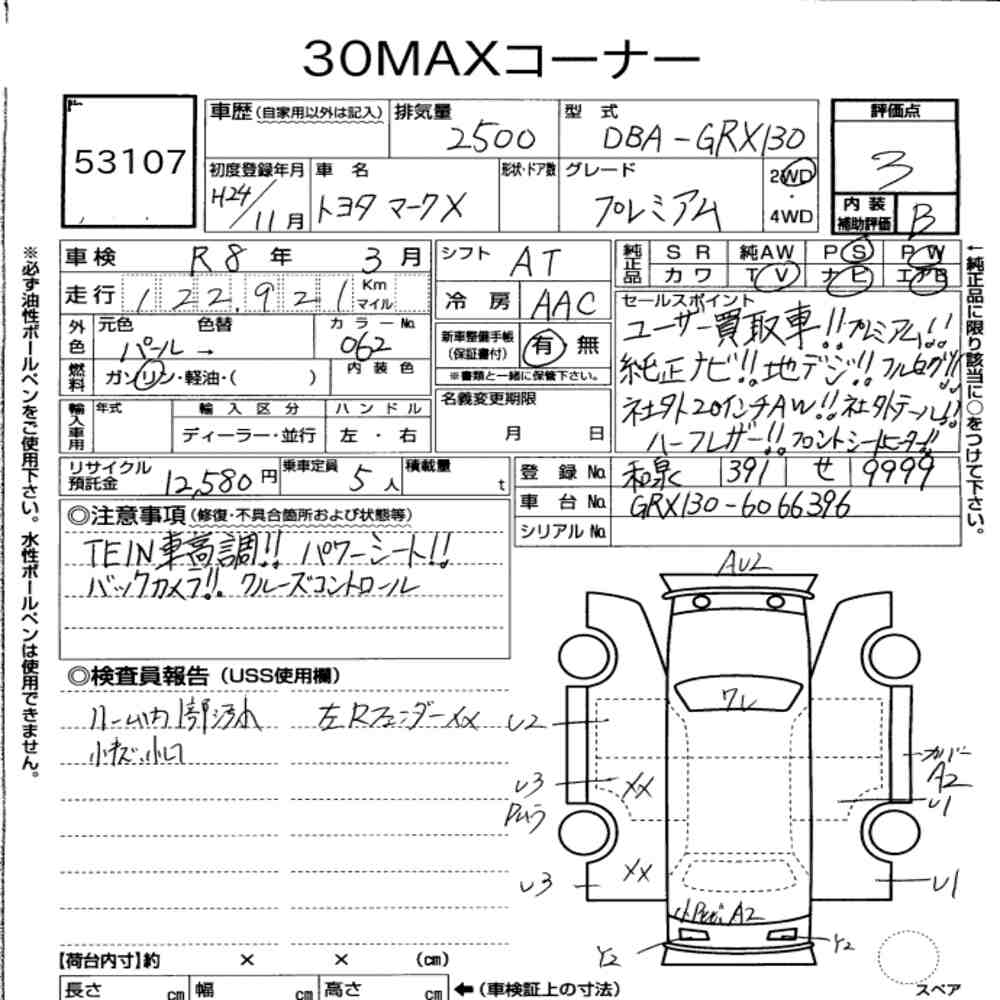 30MAXコーナー
53107
車歴 (自家用以外は記入) 排気量 2500 型式 DBA-GRX130
評価点 3
初度登録年月 H24/11月 車名 トヨタ マークX 形状・ドア数 グレード プレミアム 2WD・4WD
内装補助評価 B
車検 R8年 3月 シフト AT
走行 122,921 Km マイル 冷房 AAC
純正品 SR 純AW PS PW
カワ TV ナビ エアB
外色 元色 色替 パール→ カラーNo. 062
燃料 ガソリン・軽油・( ) 内装色
新車整備手帳 (保証書付) 有 無
※書類と一緒に保管下さい。
輸入車用 年式 輸入区分 ハンドル
ディーラー・並行 左・右
名義変更期限 月 日
セールスポイント
ユーザー買取車!!プレミアム!!
純正ナビ!!地デジ!!フルセグ!!
社外20インチAW!!社外テール!!
ハーフレザー!!フロントシートヒーター!!
リサイクル預託金 12,580円 乗車定員 5人 積載量 t
登録No. 和泉 391 せ 9999
車台No. GRX130-6066396
シリアルNo.
◎注意事項 (修復・不具合箇所および状態等)
TEIN車高調!! パワーシート!!
バックカメラ!!. クルーズコントロール
◎検査員報告 (USS使用欄)
ルーム内1部汚れ 左Rフェンダーxx
小キズ、小凹
AU2
ワレ
U2
U3
Pムラ
XX
カバー
A2
U1
U3
XX
U1
小Pキズ、A2
Y2
Y2
スペア
【荷台内寸】約 × × (cm)
長さ cm 幅 cm 高さ cm ←(車検証上の寸法)
※必ず油性ボールペンをご使用下さい。水性ボールペンは使用できません。
←純正品に限り該当に○をつけて下さい。